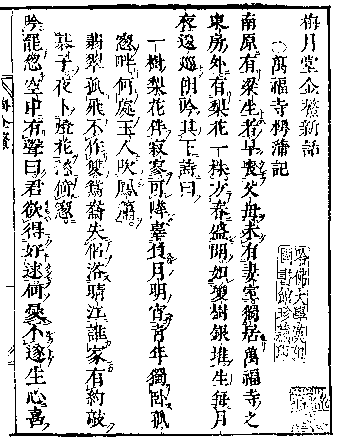 梅月堂金鰲新話
○萬福寺樗蒲記
南原有梁生者早喪父母未有妻室獨居萬福寺之
東房外有梨花一株方春盛開如瓊樹銀堆生每月
夜逡巡朗吟其下詩曰
一樹梨花伴寂寥可憐辜負月明宵青年獨臥孤
窓畔何處玉人吹鳳簫
翡翠孤飛不作雙鴛鴦失侶浴晴江誰家有約敲
碁子夜卜燈花愁倚窓
吟罷忽空中有聲曰君欲得好逑何憂不遂生心喜
哈佛大學漢和
圖書館珍藏印